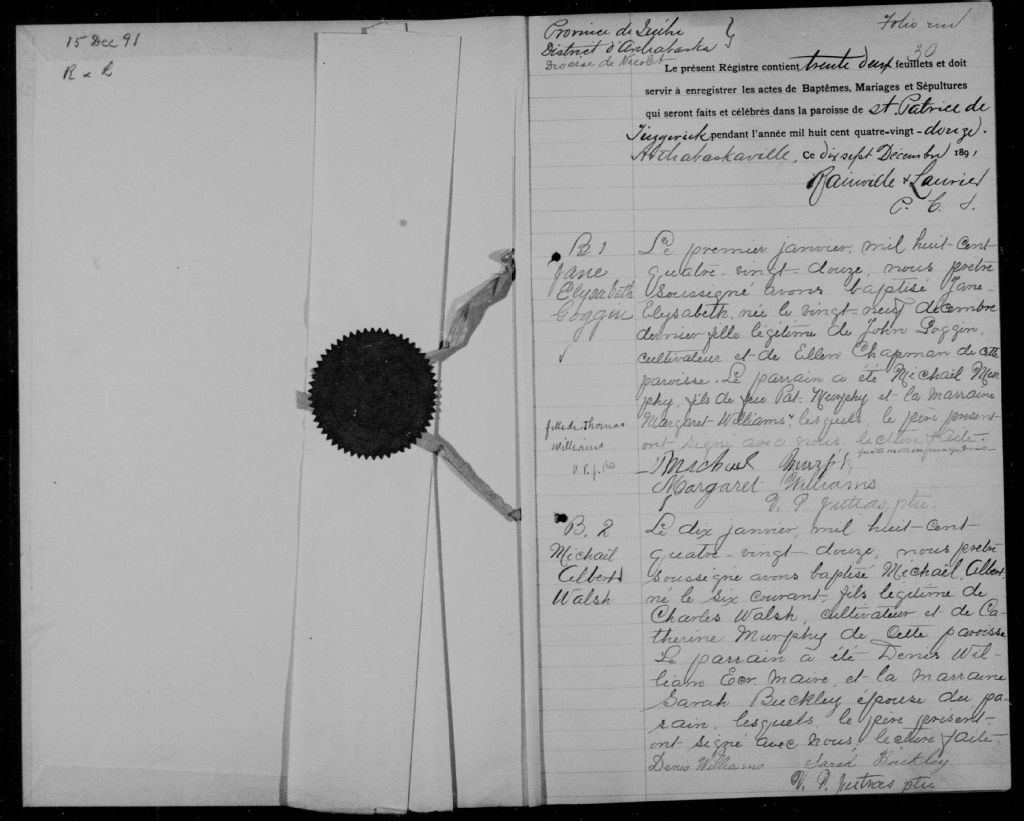 15 Dec 91
R & L
Province de Québec
District d'Arthabaska
Diocèse de Nicolet
Folio
30
Le présent Régistre contient trente deux feuillets et doit
servir à enregistrer les actes de Baptêmes, Mariages et Sépultures
qui seront faits et célébrés dans la paroisse de St. Patrice de
Tingwick pendant l'année mil huit cent quatre-vingt-douze.
Arthabaskaville, Ce dix sept Décembre 1891
Rainville & Laurier
P. C. S.
B 1
Jane
Elysabeth
Goggin
Le premier janvier, mil huit-cent
quatre-vingt-douze, nous prêtre
soussigné avons baptisé Jane
Elysabeth, née le vingt-neuf décembre
dernier fille légitime de John Goggin,
cultivateur et de Ellen Chapman de cette
paroisse. Le parrain a été Michael Mur-
phy, fils de feu Pat. Murphy et la marraine
Margaret Williams, lesquels, le père présent
ont signé avec nous. lecture faite.
fille de Thomas
Williams
V. P. J. ptre
Michael Murphy
Margaret Williams
V. P. Jutras ptre.
B. 2
Michaël
Albert
Walsh
Le dix janvier, mil huit-cent
quatre-vingt-douze, nous prêtre
soussigné avons baptisé Michaël, Albert
né le six courant, fils légitime de
Charles Walsh, cultivateur et de Ca-
therine Murphy de cette paroisse
Le parrain a été Denis Wil-
liam Ecr. Maire, et la marraine
Sarah Buckley épouse du pa-
rain, lesquels, le père présent,
ont signé avec nous. lecture faite.
Denis Williams Sarah Buckley
V. P. Jutras ptre